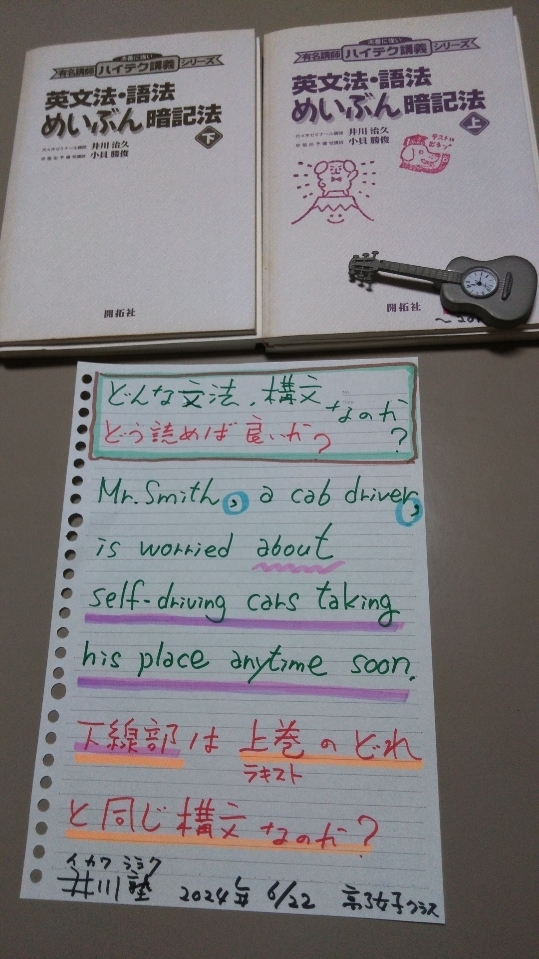 本番に強い
有名講師 ハイテク講義 シリーズ
英文法・語法
めいぶん暗記法 下
代々木ゼミナール講師 井川 治久
小貝 勝俊
開拓社
本番に強い
有名講師 ハイテク講義 シリーズ
英文法・語法
めいぶん暗記法 上
代々木ゼミナール講師 井川 治久
小貝 勝俊
開拓社
どんな文法・構文なのか
どう読めば良いか?
Mr. Smith, a cab driver,
is worried about
self-driving cars taking
his place anytime soon.
下線部は上巻のどれ
テキスト
と同じ構文なのか?
イカワ ジュク
井川塾 2024年 6/22 高3女子クラス